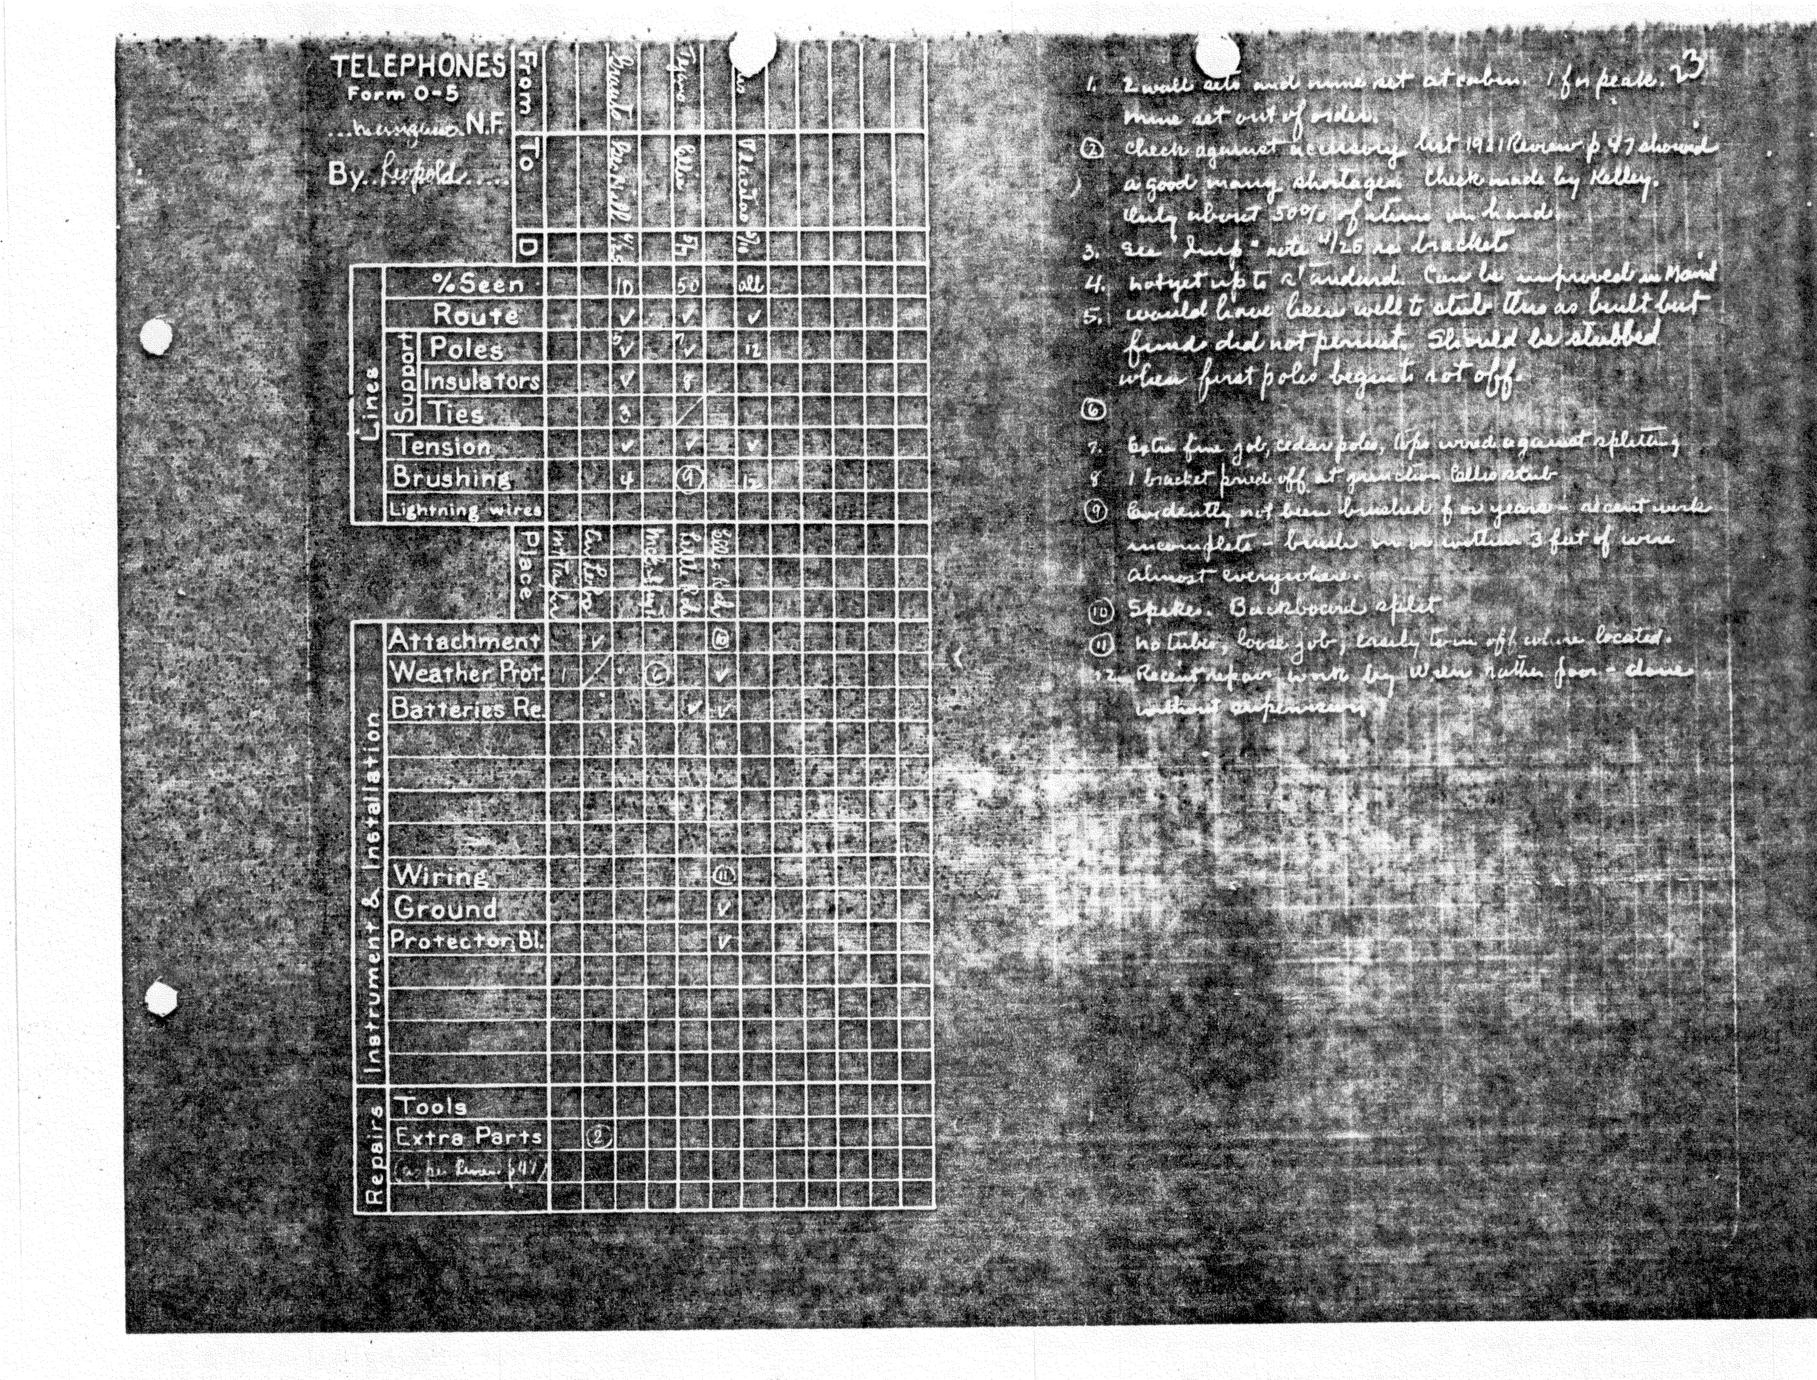 TELEPHONES
Form O-5
N.F.
By Leopold
From
To
D
Lines
% Seen 10 50 all
Route ✓ ✓ ✓
Support
Poles ✓ 7 ✓ 12
Insulators ✓ 8
Ties 3
Tension ✓ ✓ ✓
Brushing 4 9 12
Lightning wires
Place
Instrument & Installation
Attachment ✓ 10
Weather Prot. 1 6 ✓
Batteries Re. ✓ ✓
Wiring 11
Ground ✓
Protector Bl. ✓
Repairs
Tools
Extra Parts 2
(as per Review p 47)
23
1. 2 wall sets and mine set at cabin. 1 for peak.
mine set out of order.
2 Check against accessory list 1921 Review p 47 showed
a good many shortages. Check made by Kelley.
Only about 50% of items on hand.
3. See "Imp" note 4/25 re brackets
4. not yet up to standard. Can be improved in Maint
5. would have been well to stub this as built but
funds did not permit. Should be stubbed
when first poles begin to rot off.
6
7. Extra fine job, cedar poles, tops wired against splitting
8 1 bracket pried off at junction stub
9 Evidently not been brushed for years - recent work
incomplete - brush on or within 3 feet of wire
almost everywhere.
10 Spikes. Backboard split
11 no tubes, loose job, easily torn off where located.
12. Recent repair work by rather poor - done
without supervision